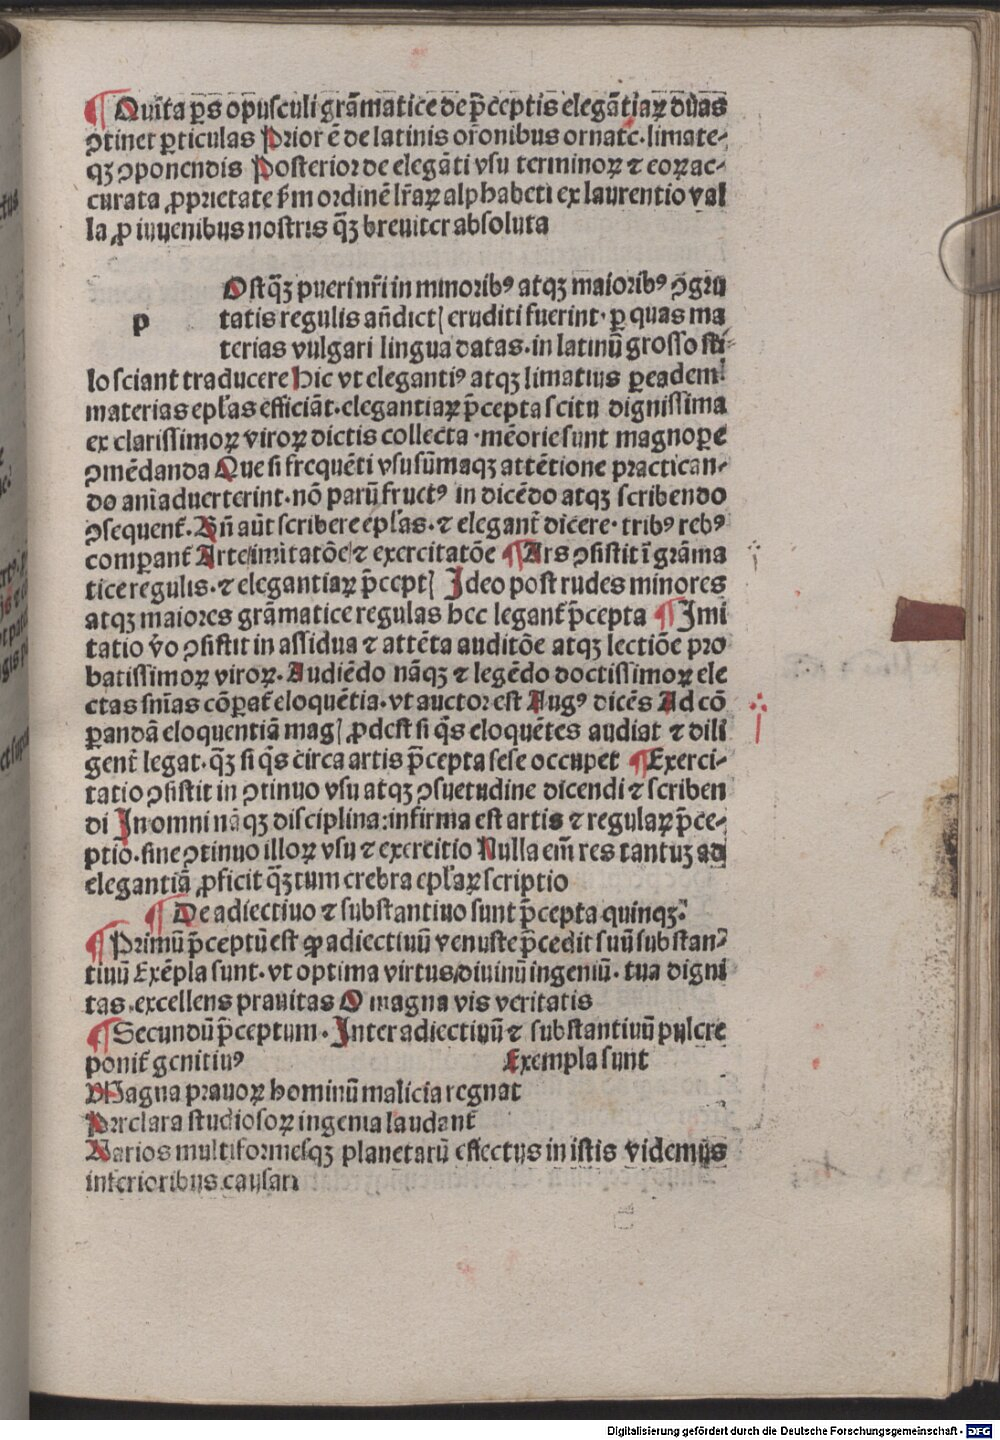 ¶ Quīta ꝑs opusculi grāmatice de p̄ceptis elegātiaꝝ duas
ꝯtinet ꝑticulas Prior ē de latinis or̄onibus ornate·limate-
qꝫ ꝯponendis Posterior de elegāti vsu terminoꝝ ⁊ eoꝝ ac-
curata ꝓprietate ẜm ordinē lr̄aꝝ alphabeti ex laurentio val
la ꝓ iuuenibus nostris qꝫ̄ breuiter absoluta
p
Ostqꝫ̄ pueri nr̄i in minoribꝰ atqꝫ maioribꝰ ꝯgru
tatis regulis an̄dictꝭ eruditi fuerint· ꝑ quas ma
terias vulgari lingua datas·in latinū grosso sti-
lo sciant traducere Hic vt elegantiꝰ atqꝫ limatius ꝑ eadem
materias ep̄las efficiāt·elegantiaꝝ p̄cepta scitu dignissima
ex clarissimoꝝ viroꝝ dictis collecta·mēorie sunt magnopere
ꝯmēdanda Que si frequēti vsu sūmaqꝫ attētione practican-
do aīaduerterint·nō paꝝ fructꝰ in dicēdo atqꝫ scribendo
ꝯsequent̄. Bn̄ aūt scribere ep̄las·⁊ elegant̄ dicere·tribꝰ rebꝰ
comparant̄ Arte/imitatōe/⁊ exercitatōe ¶ Ars ꝯsistit ī grāma
tice regulis·⁊ elegantiaꝝ p̄ceptꝭ Ideo post rudes minores
atqꝫ maiores grāmatice regulas hec legant̄ p̄cepta ¶ Imi
tatio v̄o ꝯsistit in assidua ⁊ attēta auditōe atqꝫ lectiōe pro
batissimoꝝ viroꝝ. Audiēdo nāqꝫ ⁊ legēdo doctissimoꝝ ele
ctas sn̄ias cōꝑat̄ eloquētia·vt auctor est Augꝰ dicēs Ad cō
ꝑandā eloquentiā magꝭ ꝓdest si q̄s eloquētes audiat ⁊ dili
gent̄ legat·qꝫ̄ si q̄s circa artis p̄cepta sese occupet ¶ Exerci-
tatio ꝯsistit in ꝯtinuo vsu atqꝫ ꝯsuetudine dicendi ⁊ scriben
di In omni nāqꝫ disciplina:infirma est artis ⁊ regulaꝝ p̄ce-
ptio·sine ꝯtinuo illoꝝ vsu ⁊ exercitio Nulla em̄ res tantuꝫ ad
elegantiā ꝓficit qꝫ̄tum crebra ep̄laꝝ scriptio
¶ De adiectiuo ⁊ substantiuo sunt p̄cepta quinqꝫ.
¶ Primū p̄ceptū est ꝙ adiectiuū venuste p̄cedit suū substan-
tiuū Exēpla sunt·vt optima virtus/diuinū ingeniū·tua digni
tas·excellens prauitas O magna vis veritatis
¶ Secundū p̄ceptum·Inter adiectiuū ⁊ substantiuū pulcre
ponit̄ genitiuꝰ Exempla sunt
Magna prauoꝝ hominū malicia regnat
Preclara studiosoꝝ ingenia laudant̄
Varios multiformesqꝫ planetarū effectus in istis videmus
inferioribus causari
Digitalisierung gefördert durch die Deutsche Forschungsgemeinschaft - DFG